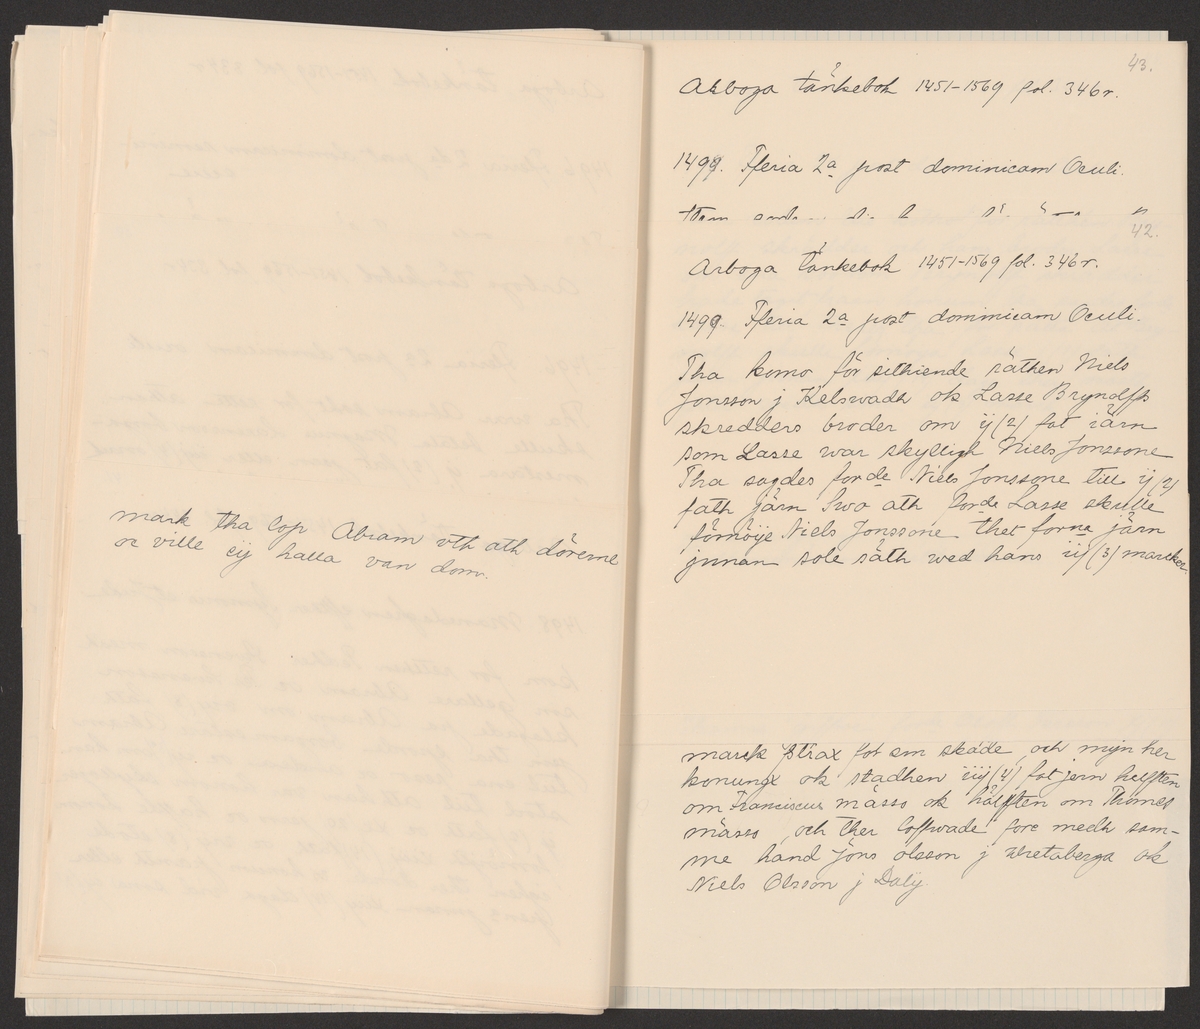 mark tha lop Abram vth ath dörerne
oc ville eij halla van dom.
43.
Arboga tänkebok 1451-1569 fol. 346r.
1499. Fferia 2a post dominicam Oculi.
42.
Arboga tänkebok 1451-1569 fol. 346r.
1499. Fferia 2a post dominicam Oculi.
Tha komo för sithiende räthen Niels
Jonsson j Kelswadh ok Lasse Bryndlfss
skredders broder om ij (2) fat iärn
som Lasse war skylligh Niels Jonssone
Tha sagdes forde Niels Jonssone till ij (2)
fath järn Swo ath forde Lasse skulle
förnöije Niels Jonssone thet forna järn
jnnan sole säth wed hans iij (3) marcker.
marck strax for em skade, och mijn her
konungx ok stadhen iiij (4) fat jern helfften
om Franciscus mässo ok hälfften om Thomes
mässo, och ther loffwade fore medh sam-
me hand Jöns olsson j vretaberga ok
Niels Olsson j Dalij.